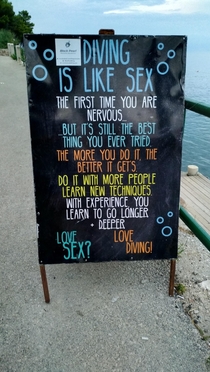 DIVING
IS LIKE SEX
THE FIRST TIME YOU ARE
NERVOUS...
...BUT IT'S STILL THE BEST
THING YOU EVER TRIED.
THE MORE YOU DO IT, THE
BETTER IT GETS.
DO IT WITH MORE PEOPLE
LEARN NEW TECHNIQUES.
WITH EXPERIENCE YOU
LEARN TO GO LONGER
+ DEEPER
LOVE LOVE
SEX? DIVING!